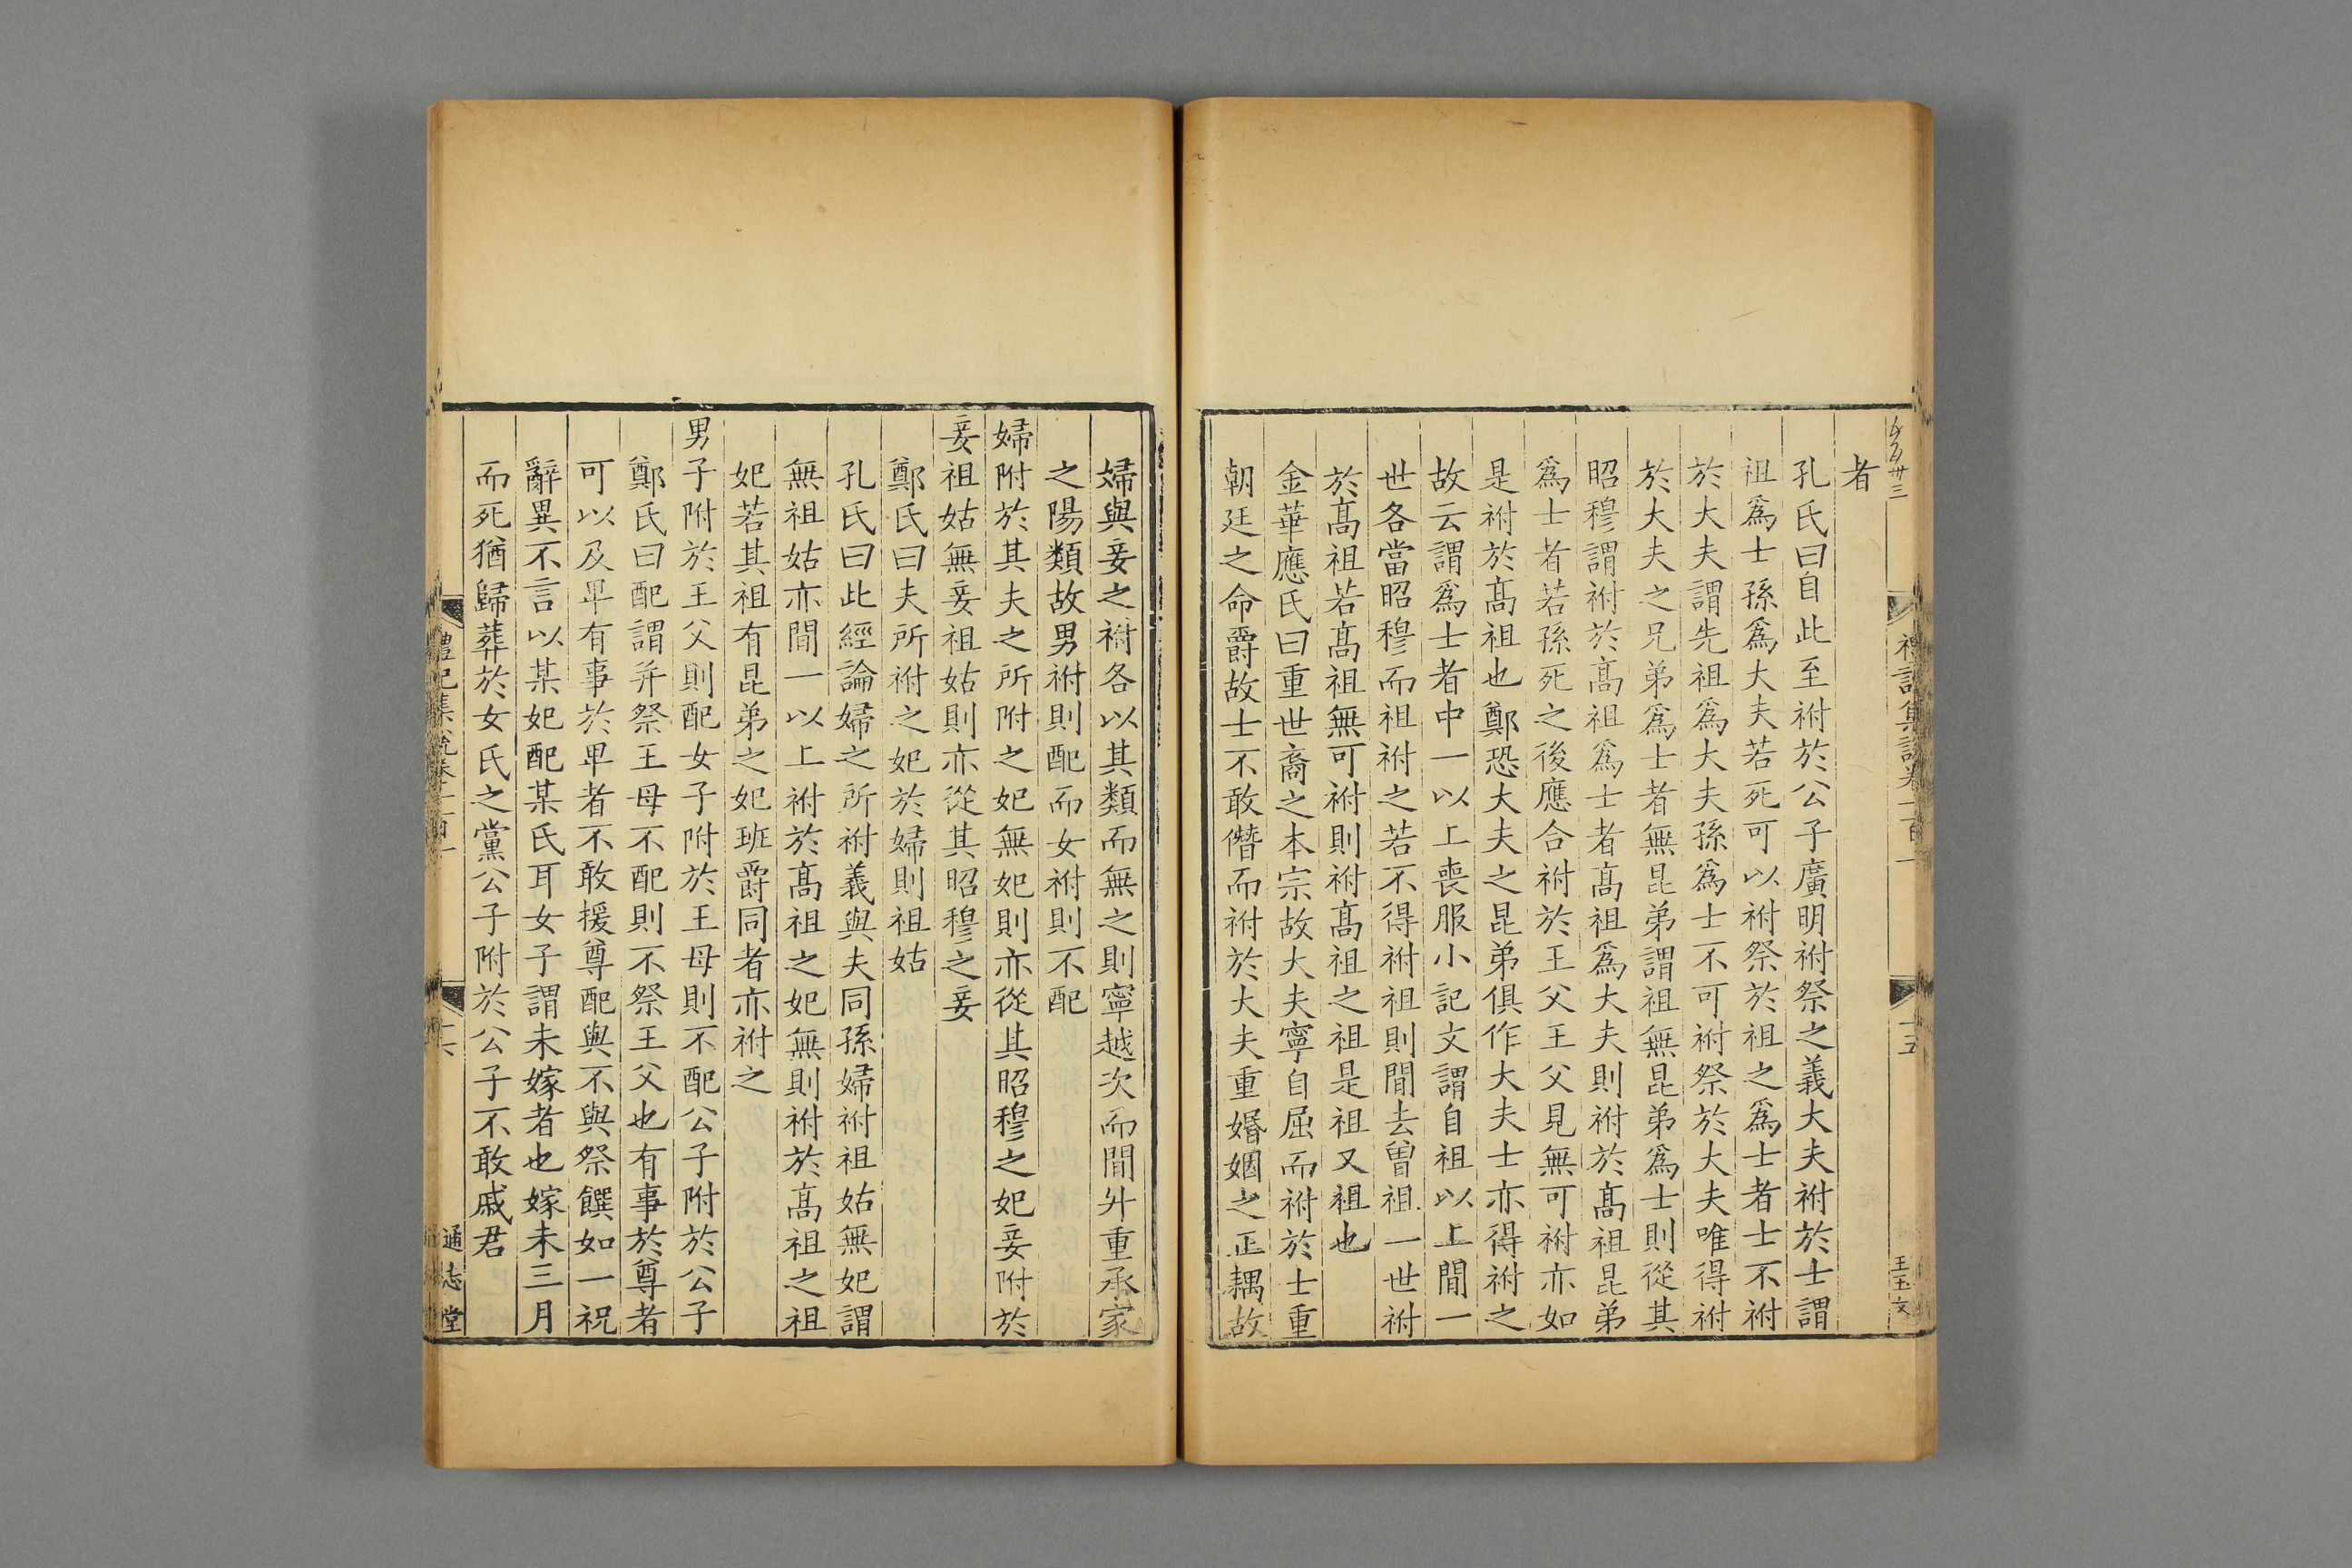 者
孔氏曰自此至祔於公子廣明祔祭之義大夫祔於士謂
祖爲士孫爲大夫若死可以祔祭於祖之爲士者士不祔
於大夫謂先祖爲大夫孫爲士不可祔祭於大夫唯得祔
於大夫之兄弟爲士者無昆弟謂祖無昆弟爲士則從其
昭穆謂祔於髙祖爲士者髙祖爲大夫則祔於髙祖昆弟
爲士者若孫死之後應合祔於王父王父見無可祔亦如
是祔於髙祖也鄭恐大夫之昆弟俱作大夫士亦得祔之
故云謂爲士者中一以上喪服小記文謂自祖以上間一
世各當昭穆而祖祔之若不得祔祖則間去曾祖一世祔
於髙祖若髙祖無可祔則祔髙祖之祖是祖又祖也
金華應氏曰重世裔之本宗故大夫寧自屈而祔於士重
朝廷之命爵故士不敢僭而祔於大夫重婚姻之正耦故
禮記集說卷一百一
十五
王玉文
婦與妾之祔各以其類而無之則寧越次而間升重承家
之陽類故男祔則配而女祔則不配
婦附於其夫之所附之妃無妃則亦從其昭穆之妃妾附於
妾祖姑無妾祖姑則亦從其昭穆之妾
鄭氏曰夫所祔之妃於婦則祖姑
孔氏曰此經論婦之所祔義與夫同孫婦祔祖姑無妃謂
無祖姑亦間一以上祔於髙祖之妃無則祔於髙祖之祖
妃若其祖有昆弟之妃班爵同者亦祔之
男子附於王父則配女子附於王母則不配公子附於公子
鄭氏曰配謂并祭王母不配則不祭王父也有事於尊者
可以及卑有事於卑者不敢援尊配與不與祭饌如一祝
辭異不言以某妃配某氏耳女子謂未嫁者也嫁未三月
而死猶歸葬於女氏之黨公子附於公子不敢戚君
禮記集說卷一百一
十六
通志堂